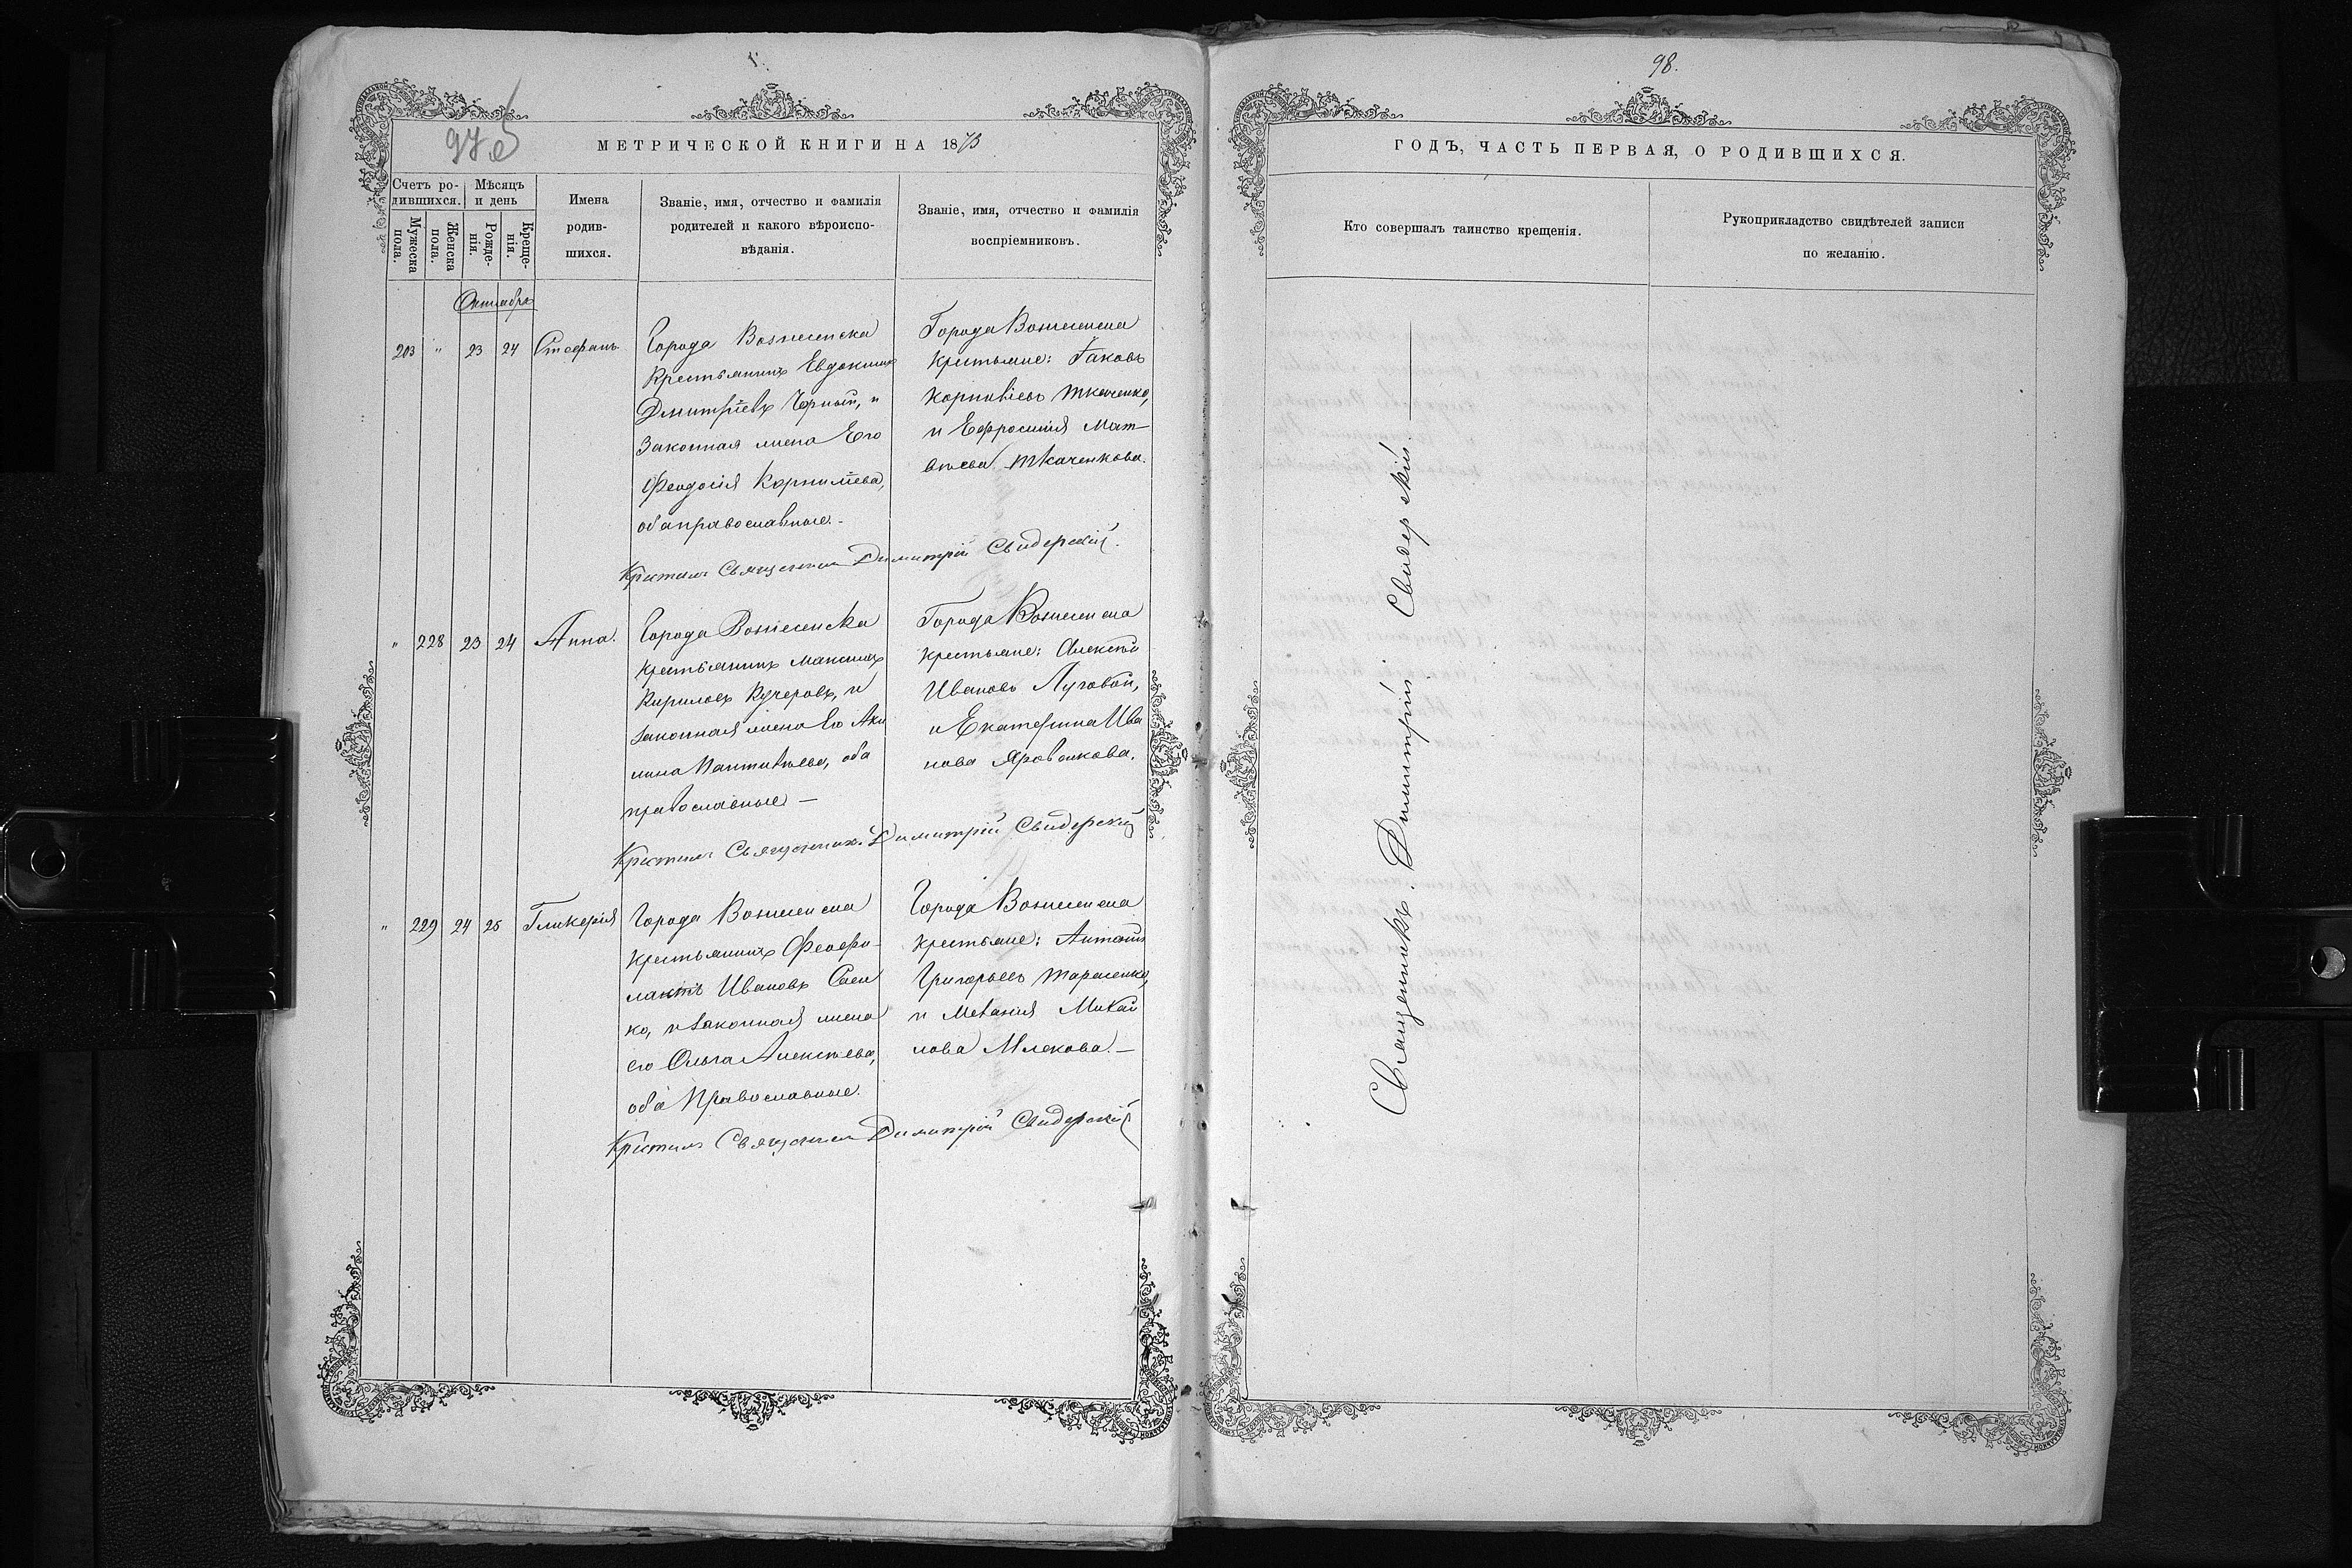 97
МЕТРИЧЕСКОЙ КНИГИ НА 1873
Счетъ ро-
дившихся.
Мѣсяцъ
и день
Мужеска
пола.
Женска
пола.
Рожде-
нія.
Креще-
нія.
Имена
родив-
шихся.
Званіе, имя, отчество и фамилія
родителей и какого вѣроиспо-
вѣданія.
Званіе, имя, отчество и фамилія
воспріемниковъ.
Октябрь
203 " 23 24 Стефанъ
Города Вознесенска
Крестьянинъ Евдокимъ
Дмитріевъ Чорный, и
Законная жена Его
Феодосія Корнилѣева,
оба православные.
Города Вознесенска
крестьяне: Іаковъ
Ткаченко,
и Ефросинія Мат-
вѣева Ткаченкова.
Крестилъ Священникъ Димитрій Свидерскій.
" 228 23 24 Анна.
Города Вознесенска
крестьянинъ Максимъ
Кириловъ Кучеровъ, и
законная жена Его Аку
лина Пантилѣева, оба
православные —
Города Вознесенска
крестьяне: Алексѣй
Ивановъ Луговой,
и Екатерина Ива
нова
Крестилъ Священникъ Димитрій Свидерскій
" 229 24 25 Гликерія
Города Вознесенска
крестьянинъ Феофи-
лактъ Ивановъ Саен
ко, и законная жена
его Ольга Алексѣева,
оба Православные.
Города Вознесенска
крестьяне: Антоній
Григорьевъ Тарасенко,
и Меланія Михай
лова
Крестилъ Священникъ Димитрій Свидерскій
98.
ГОДЪ, ЧАСТЬ ПЕРВАЯ, О РОДИВШИХСЯ.
Кто совершалъ таинство крещенія.
Рукоприкладство свидѣтелей записи
по желанію.
Священникъ. Димитрій. Свидерскій.